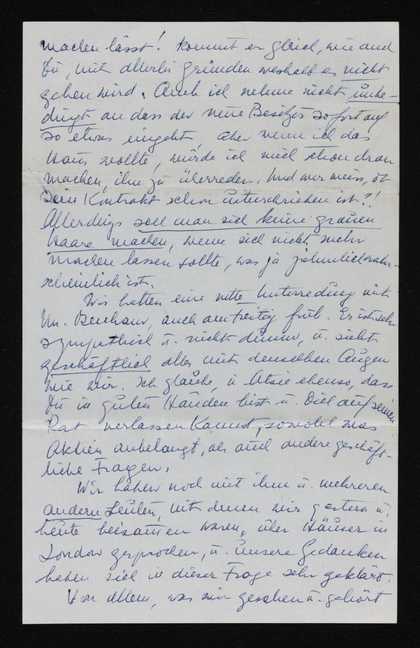 machen lässt! Kommt er gleich, wie auch
Du, mit allerlei Gründen weshalb es nicht
gehen wird. Auch ich nehme nicht unbe-
dingt an dass der neue Besitzer sofort auf
so etwas eingeht, aber wenn ich das
Haus wollte, würde ich mich schon dran
machen, ihn zu überreden. Und wer weiss, ob
sein Kontrakt schon unterschrieben ist?!
Allerdings soll man sich keine grauen
Haare machen, wenn sich nichts mehr
machen lassen sollte, was ja ziemlich wahr-
scheinlich ist.
Wir hatten eine nette Unterredung mit
Mr. , auch am Freitag früh. Er ist sehr
sympathisch u. nicht dumm, u. sieht
geschäftlich alles mit denselben Augen
wie wir. Ich glaube, u. ebenso, dass
Du in guten Händen bist u. Dich auf seinen
Rat verlassen kannst, sowohl was
Aktien anbelangt, als auch andere geschäft-
liche Fragen.
Wir haben noch mit ihm u. mehreren
andern Leuten, mit denen wir gestern u.
heute beisammen waren, über Häuser in
London gesprochen, u. unsere Gedanken
haben sich in dieser Frage sehr geklärt.
Von allem, was wir gesehen u. gehört